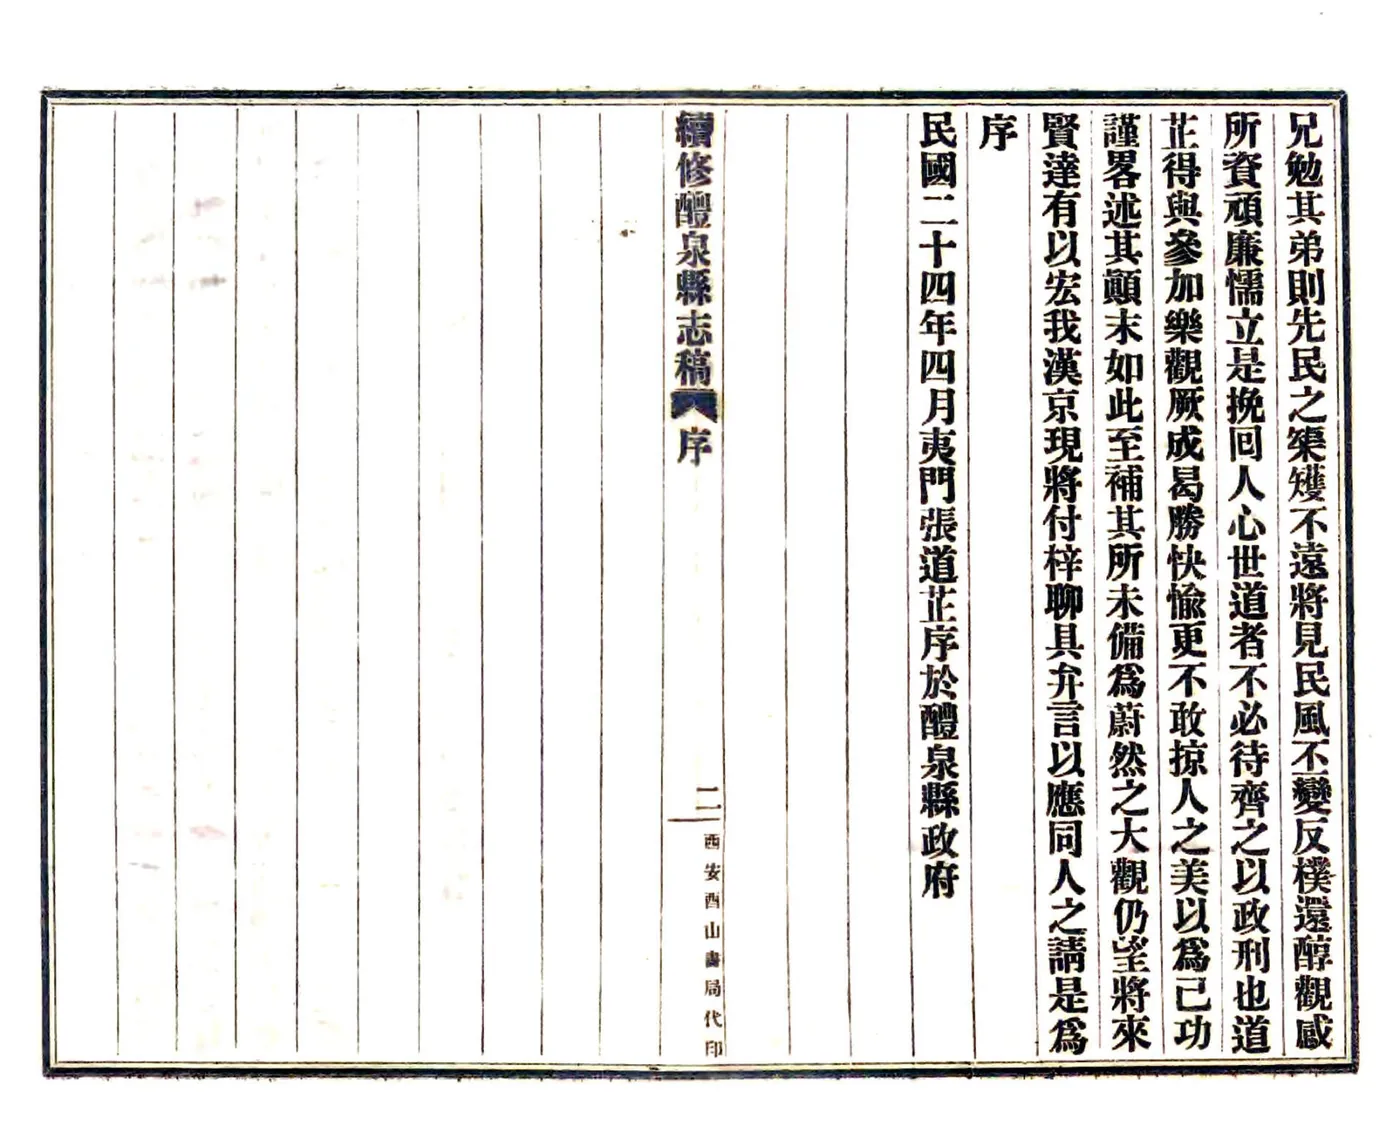 兄勉其弟則先民之榘矱不遠將見民風丕變反樸還醇觀感
所資頑廉懦立是挽回人心世道者不必待齊之以政刑也道
芷得與參加樂觀厥成曷勝快愉更不敢掠人之美以爲己功
謹畧述其顛末如此至補其所未備爲蔚然之大觀仍望將來
賢達有以宏我漢京現將付梓聊具弁言以應同人之請是爲
序
民國二十四年四月夷門張道芷序於醴泉縣政府
續修醴泉縣志稿 序
二
西安酉山書局代印